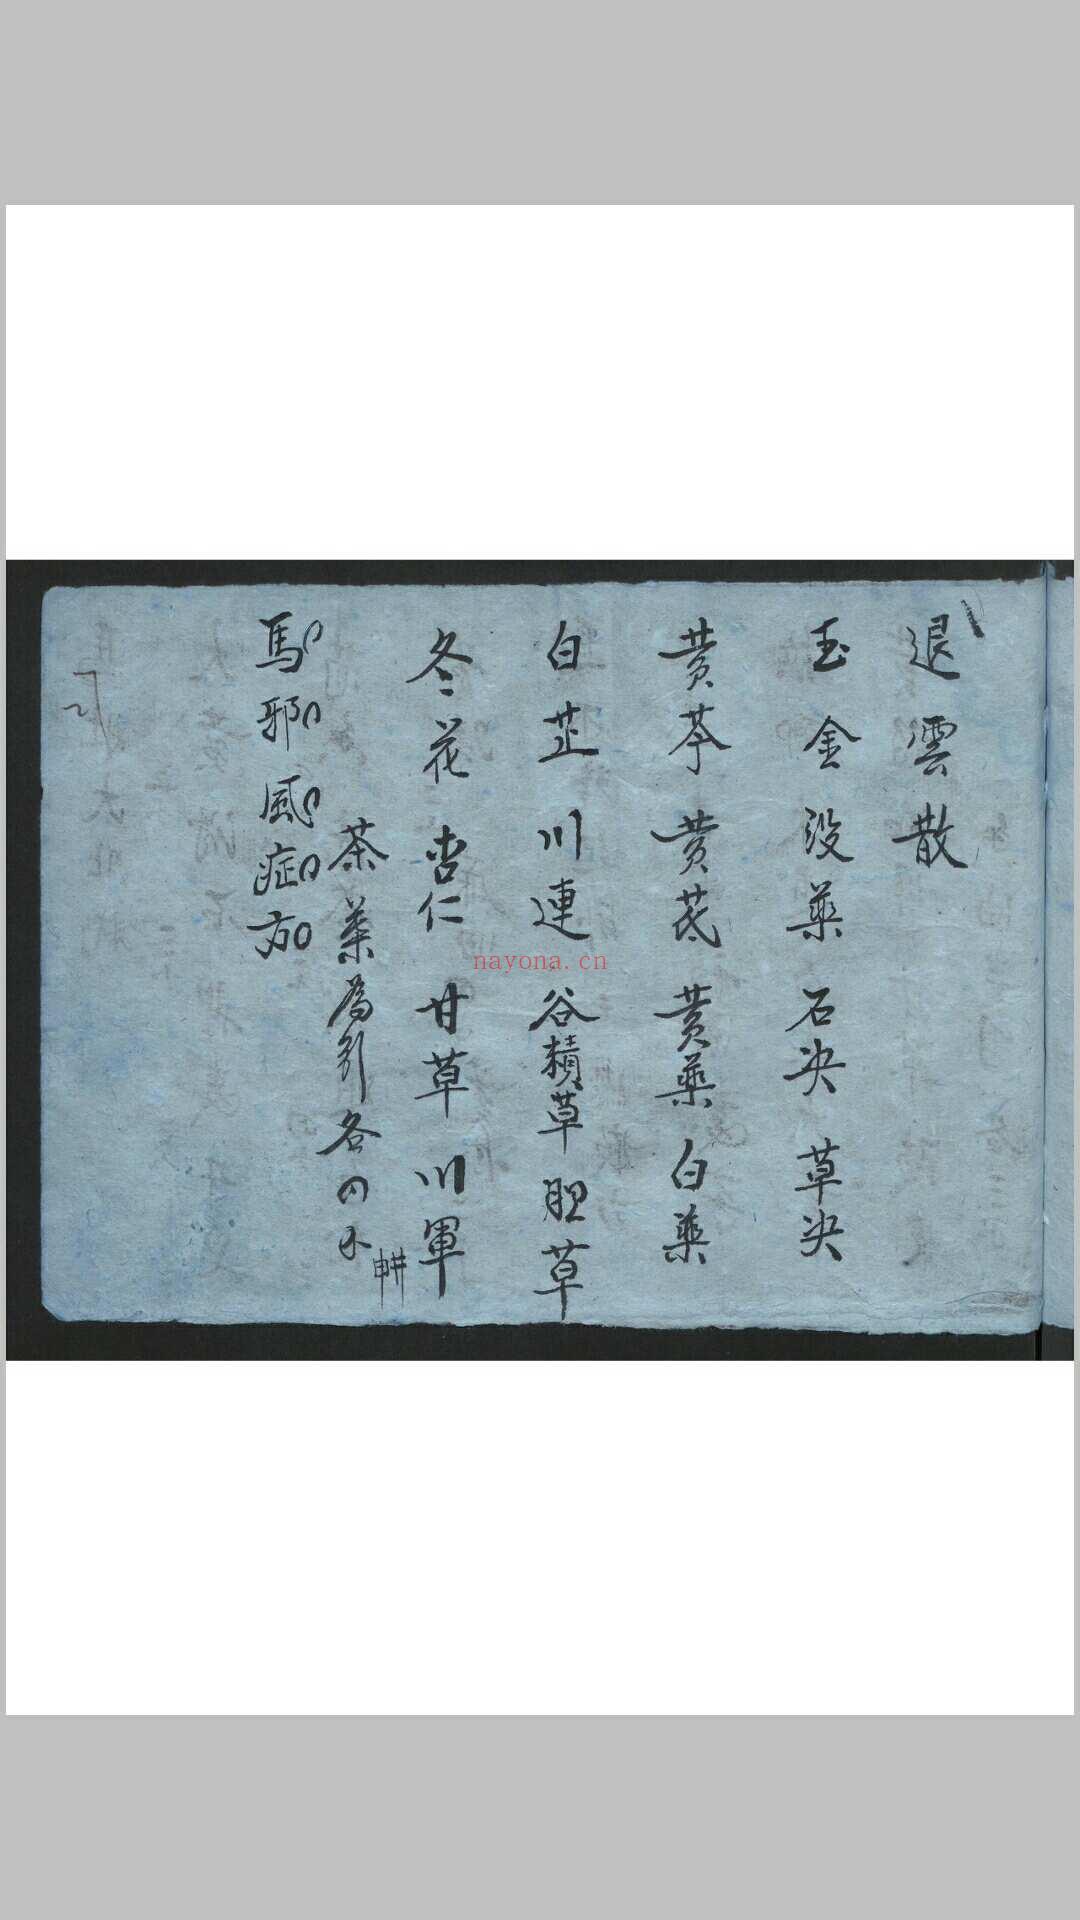 退雲散
玉金 没藥 石决 草决
黄芩 黄芪 黄藥 白藥
白芷 川連 谷積草 胆草
冬花 杏仁 甘草 川軍
茶葉為引各
馬邪風症方
nayona.cn